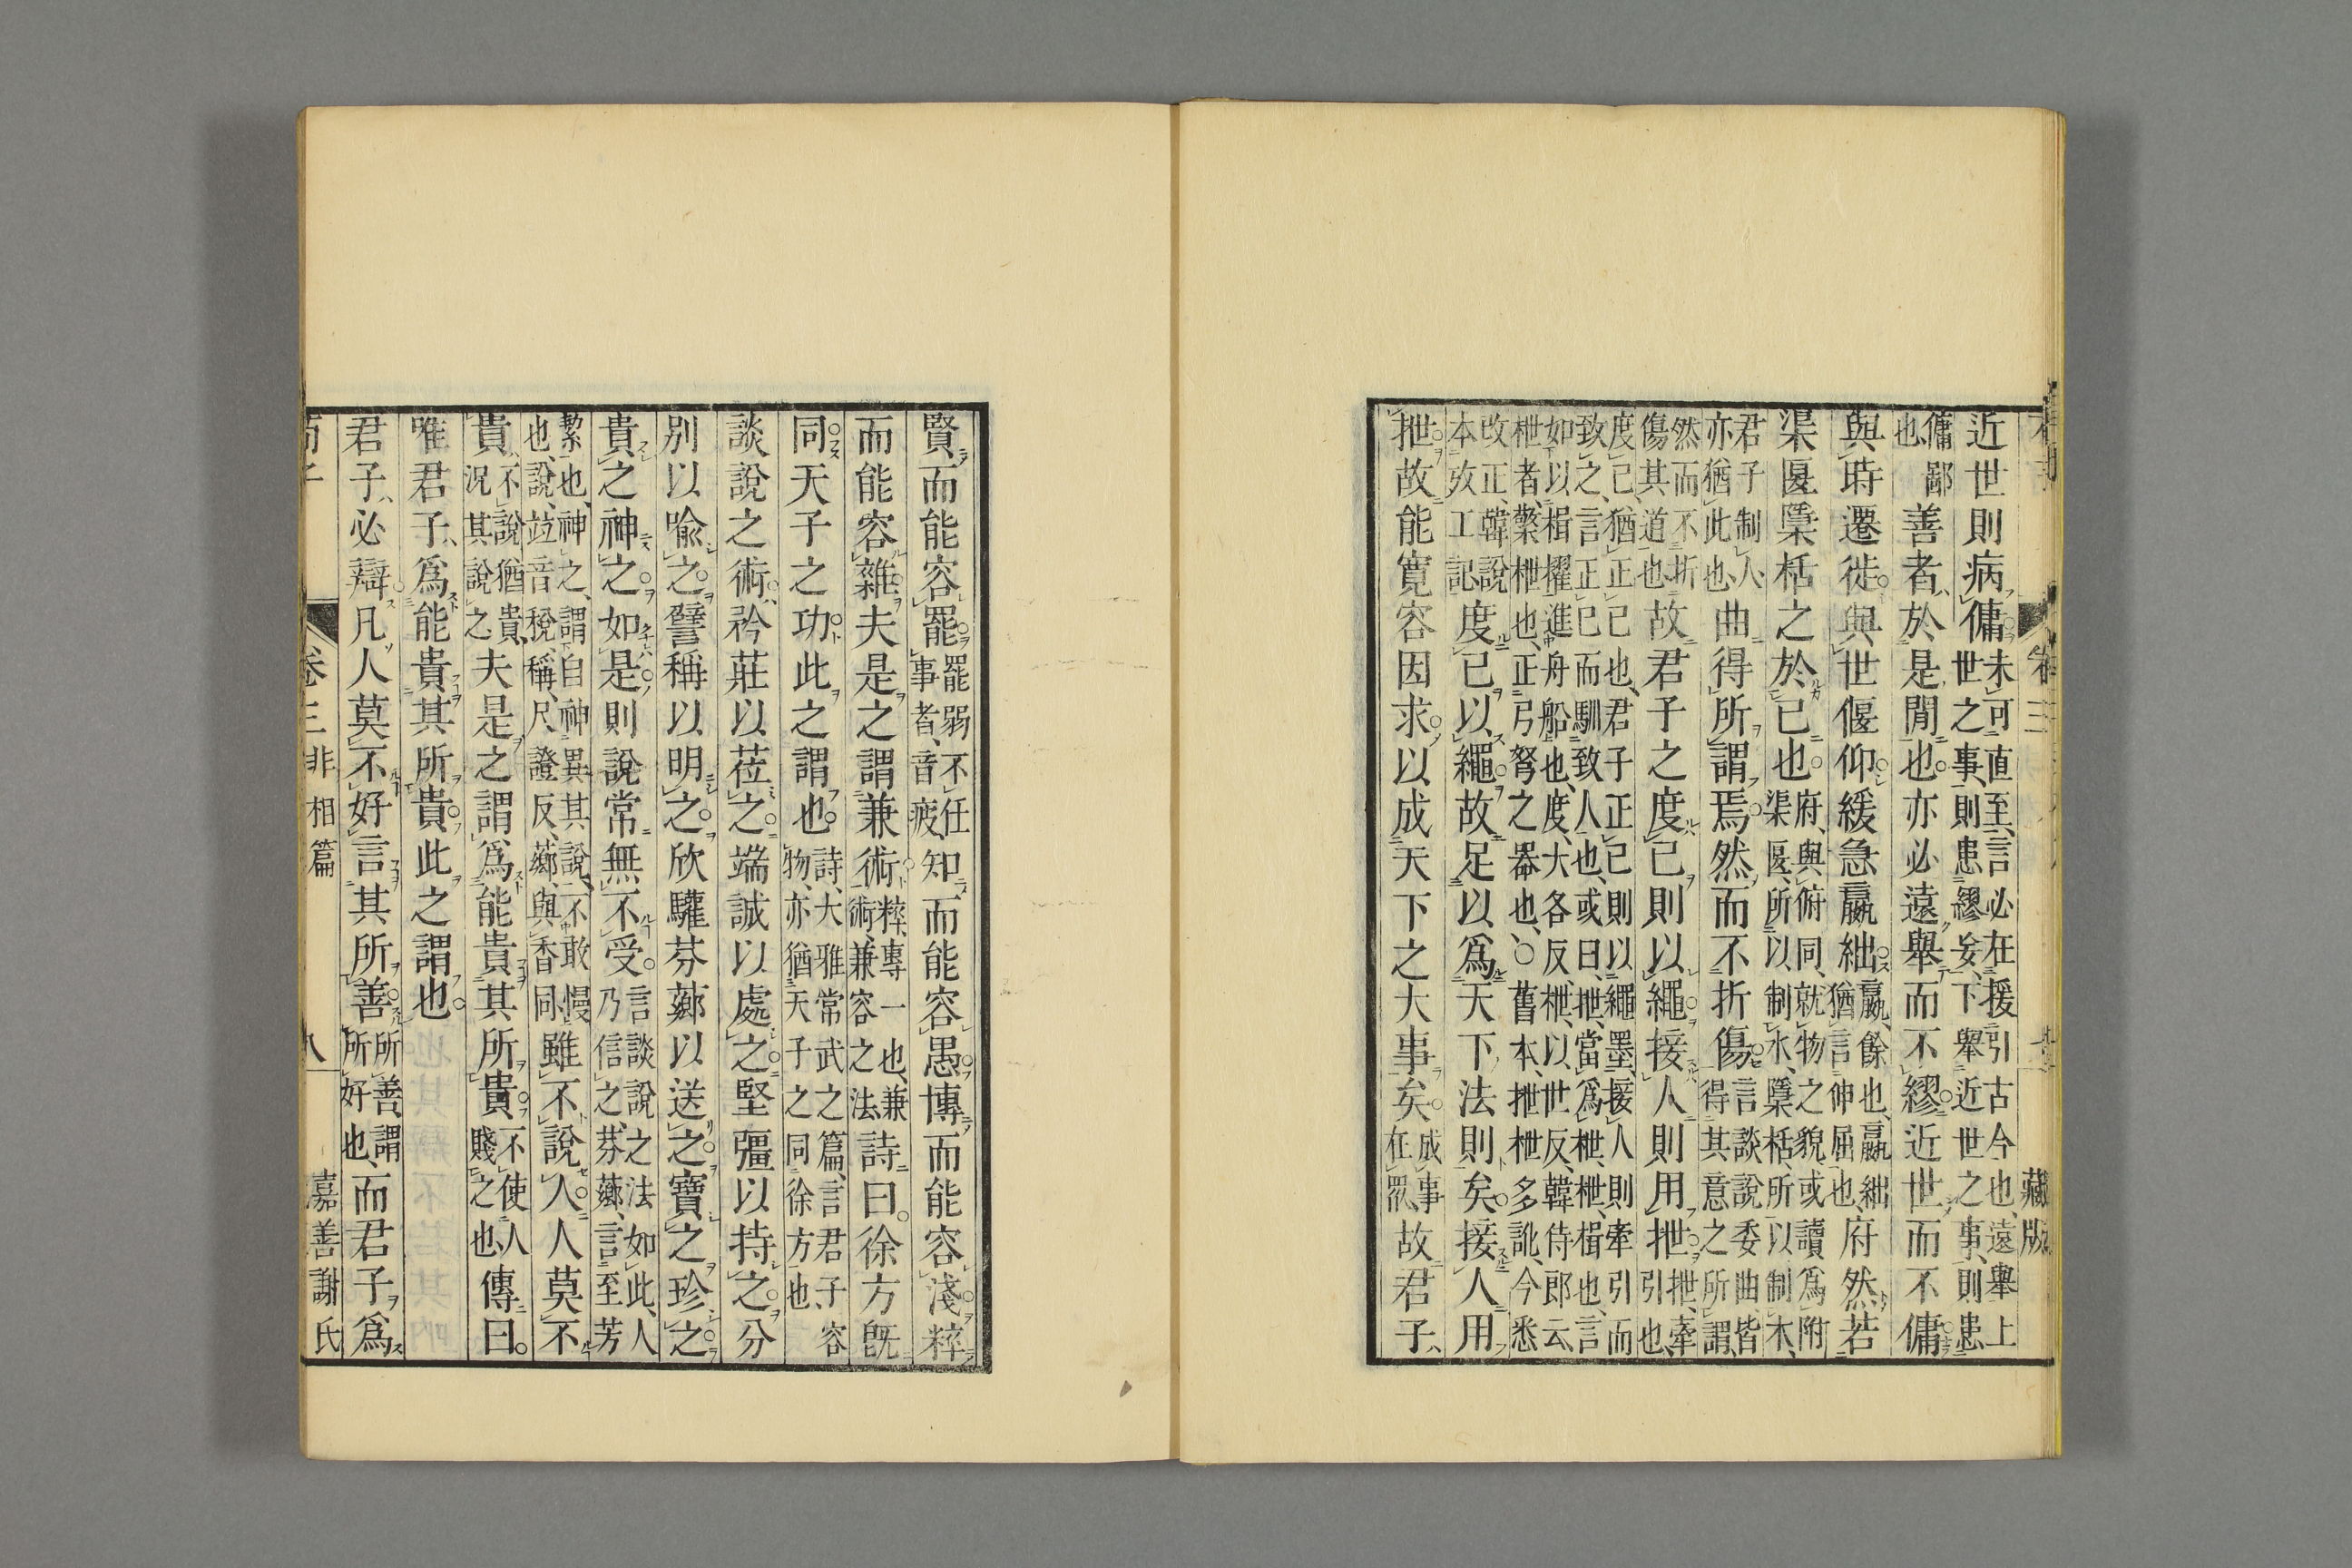 近世則病傭未可直至言必在援引古今也遠舉上世之事則患繆妄下舉近世之事則患
傭鄙也善者於是閒也亦必遠舉而不繆近世而不傭
與時遷徙與世偃仰緩急嬴絀嬴餘也嬴絀猶言伸屈也府然若
渠匽檃栝之於已也府與俯同就物之貌或讀爲附渠匽所以制水檃栝所以制木
君子制人亦猶此也曲得所謂焉然而不折傷言談說委曲皆得其意之所謂
然而不折傷其道也故君子之度己則以繩接人則用抴抴牽引也
度己猶正己也君子正己則以繩墨接人則牽引而致之言正己而馴致人也或曰抴當爲枻枻楫也言
如以楫擢進舟船也度大各反枻以世反韓侍郎云枻者檠枻也正弓弩之器也○舊本抴枻多訛今悉
改正韓說本攷工記度己以繩故足以爲天下法則矣接人用
抴故能寬容因求以成天下之大事矣成事在眾故君子
賢而能容罷罷弱不任事者音疲知而能容愚博而能容淺粹
而能容雜夫是之謂兼術粹專一也兼術兼容之法詩曰徐方旣
同天子之功此之謂也詩大雅常武之篇言君子容物亦猶天子之同徐方也
談說之術矜莊以莅之端誠以處之堅彊以持之分
別以喩之譬稱以明之欣驩芬薌以送之寶之珍之
貴之神之如是則說常無不受言談說之法如此人乃信之芬薌言至芳
絜也神之謂自神異其說不敢慢也說竝音稅稱尺證反薌與香同雖不說人人莫不
貴不說猶貴況其說之夫是之謂爲能貴其所貴不使人賤之也傳曰
唯君子爲能貴其所貴此之謂也
君子必辯凡人莫不好言其所善所善謂所好也而君子爲
荀子 卷三 非相篇 八 嘉善謝氏
藏版